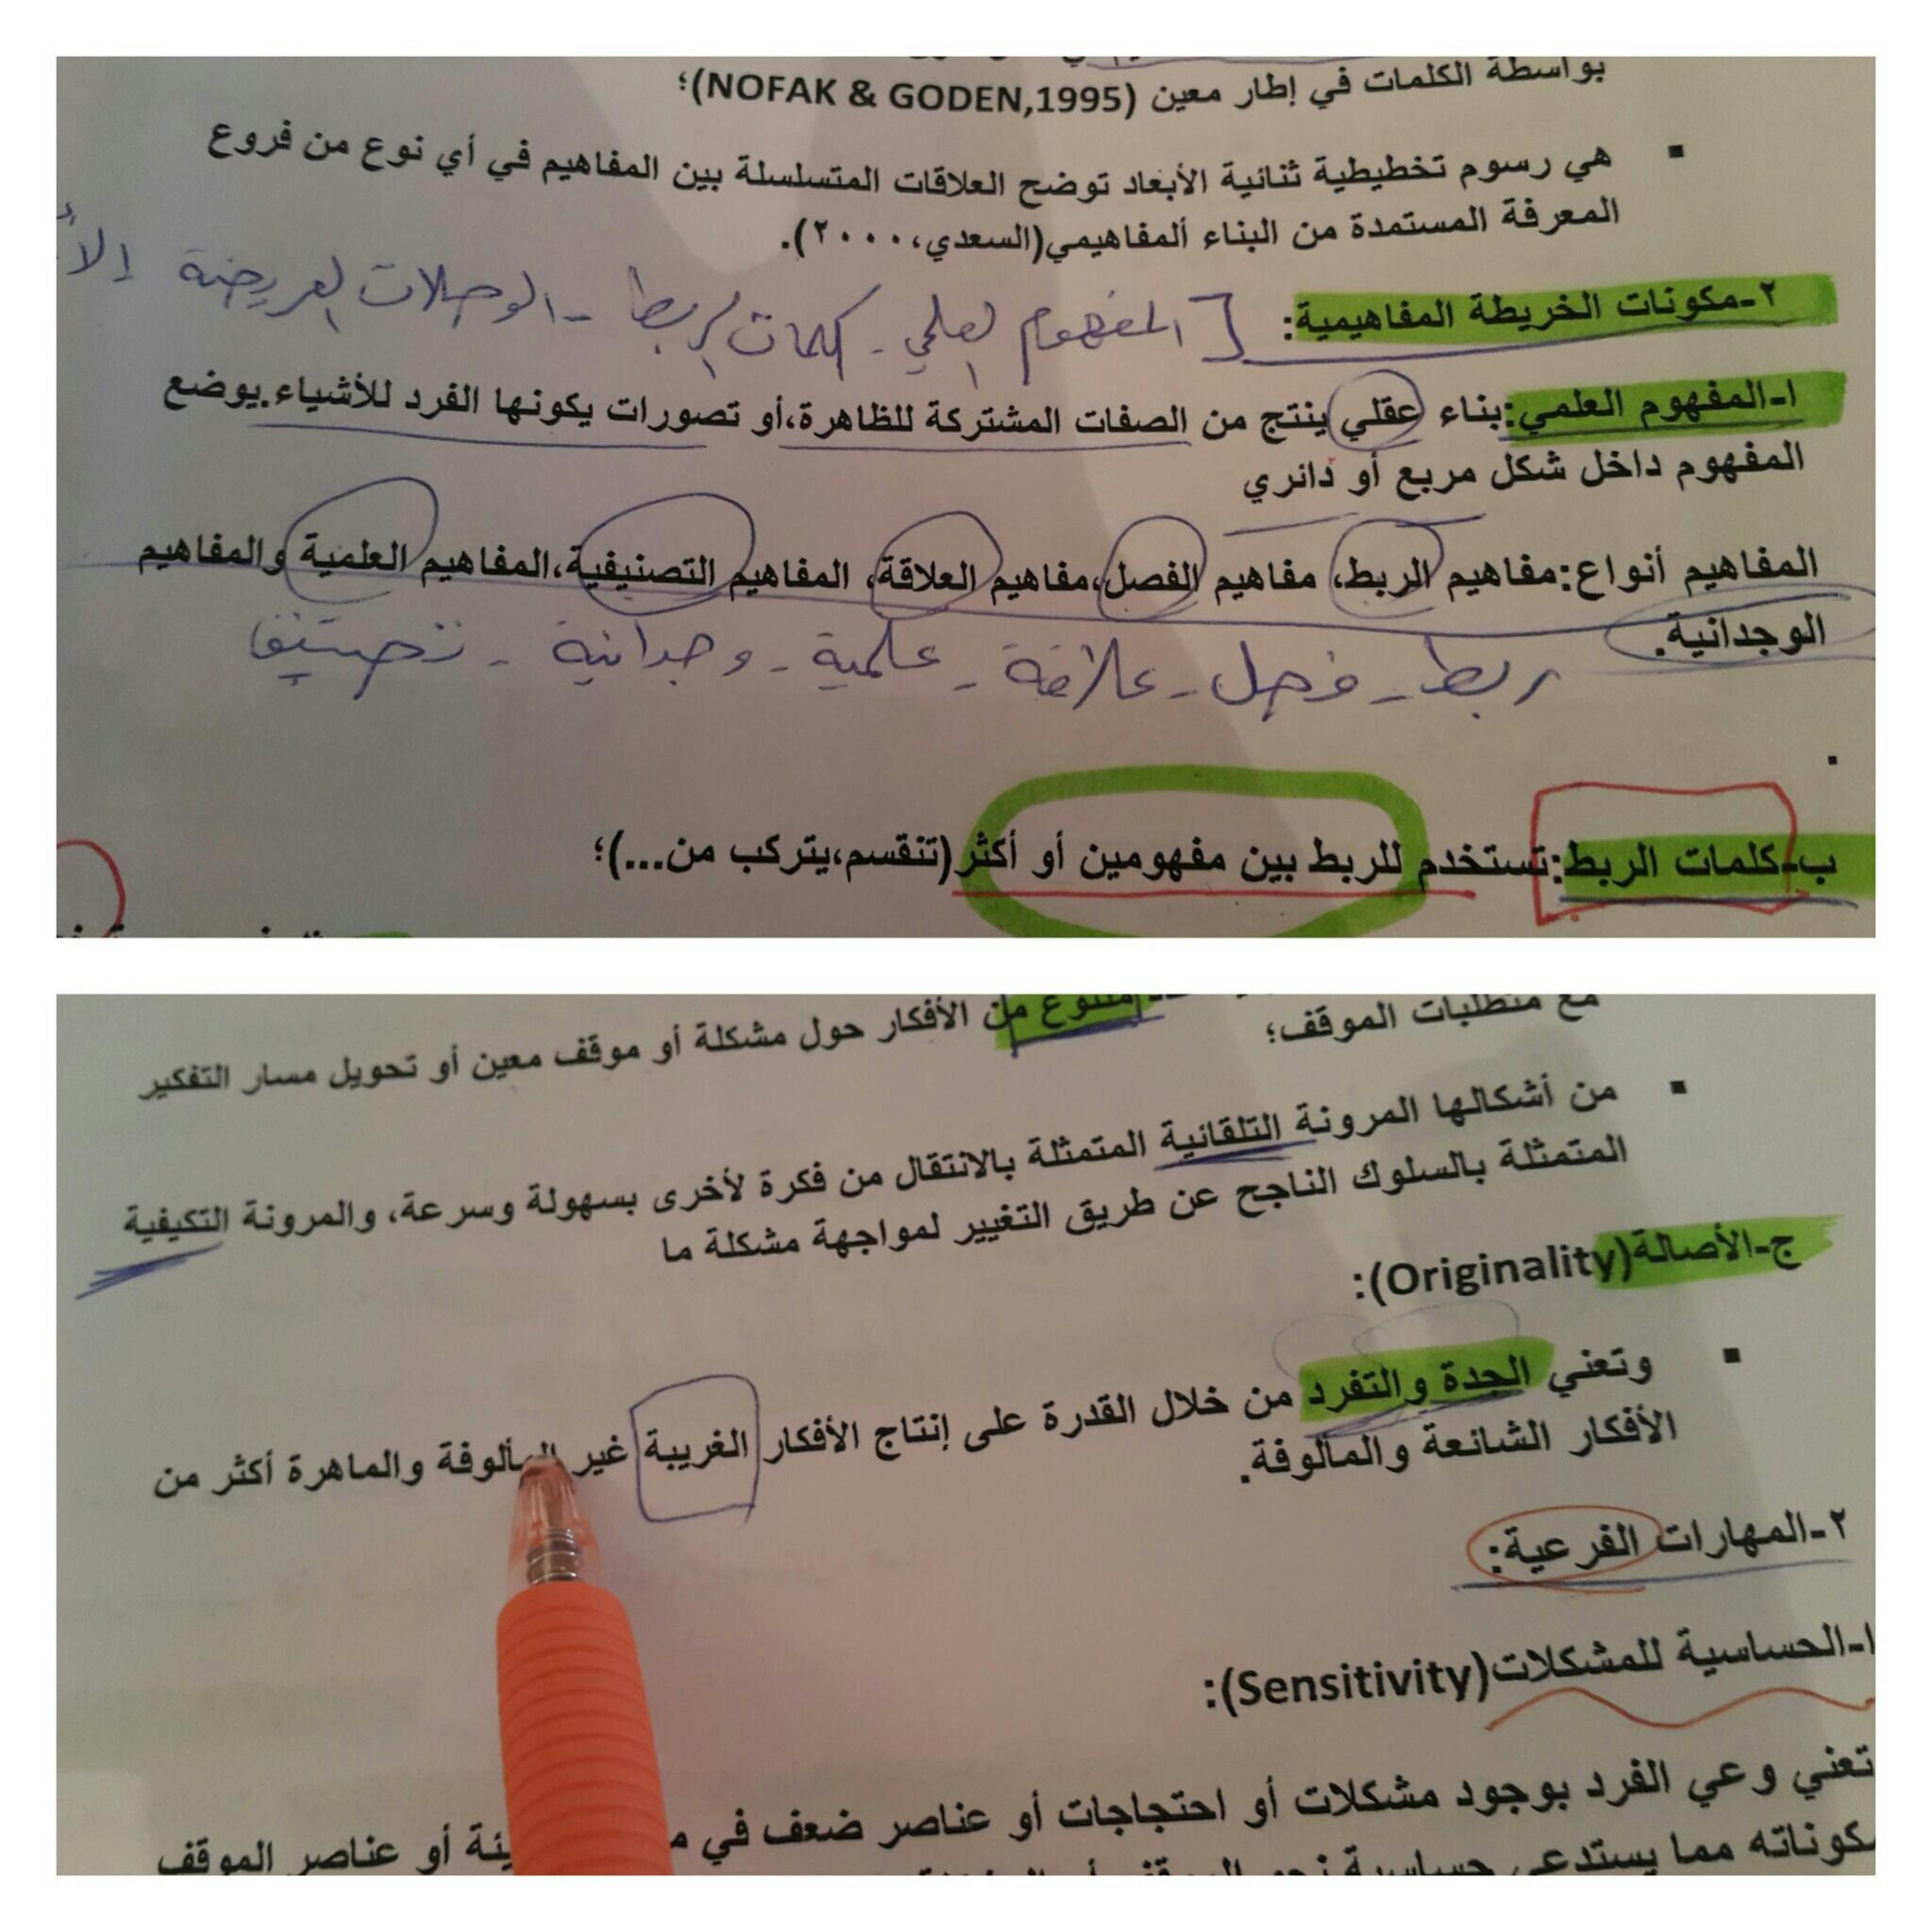 بواسطة الكلمات في إطار معين (NOFAK & GODEN,1995)؛
▪ هي رسوم تخطيطية ثنائية الأبعاد توضح العلاقات المتسلسلة بين المفاهيم في أي نوع من فروع
المعرفة المستمدة من البناء ألمفاهيمي(السعدي،٢٠٠٠).
٢-مكونات الخريطة المفاهيمية: [المفهوم العلمي - كلمات الربط - الوصلات العريضة
ا-المفهوم العلمي:بناء عقلي ينتج من الصفات المشتركة للظاهرة،أو تصورات يكونها الفرد للأشياء.يوضع
المفهوم داخل شكل مربع أو دائري
المفاهيم أنواع:مفاهيم الربط، مفاهيم الفصل،مفاهيم العلاقة، المفاهيم التصنيفية،المفاهيم العلمية والمفاهيم
الوجدانية.
ربط - فصل - علاقة - علمية - وجدانية - تصنيف
.
ب-كلمات الربط:تستخدم للربط بين مفهومين أو أكثر(تنقسم،يتركب من...)؛
متنوع من الأفكار حول مشكلة أو موقف معين أو تحويل مسار التفكير
مع متطلبات الموقف؛
▪ من أشكالها المرونة التلقائية المتمثلة بالانتقال من فكرة لأخرى بسهولة وسرعة، والمرونة التكيفية
المتمثلة بالسلوك الناجح عن طريق التغيير لمواجهة مشكلة ما
ج-الأصالة(Originality):
▪ وتعني الجدة والتفرد من خلال القدرة على إنتاج الأفكار الغريبة غير المألوفة والماهرة أكثر من
الأفكار الشائعة والمألوفة.
٢-المهارات الفرعية:
ا-الحساسية للمشكلات(Sensitivity):
تعني وعي الفرد بوجود مشكلات أو احتجاجات أو عناصر ضعف في أو عناصر الموقف
مما يستدعي حساسية نحو الموقف أو